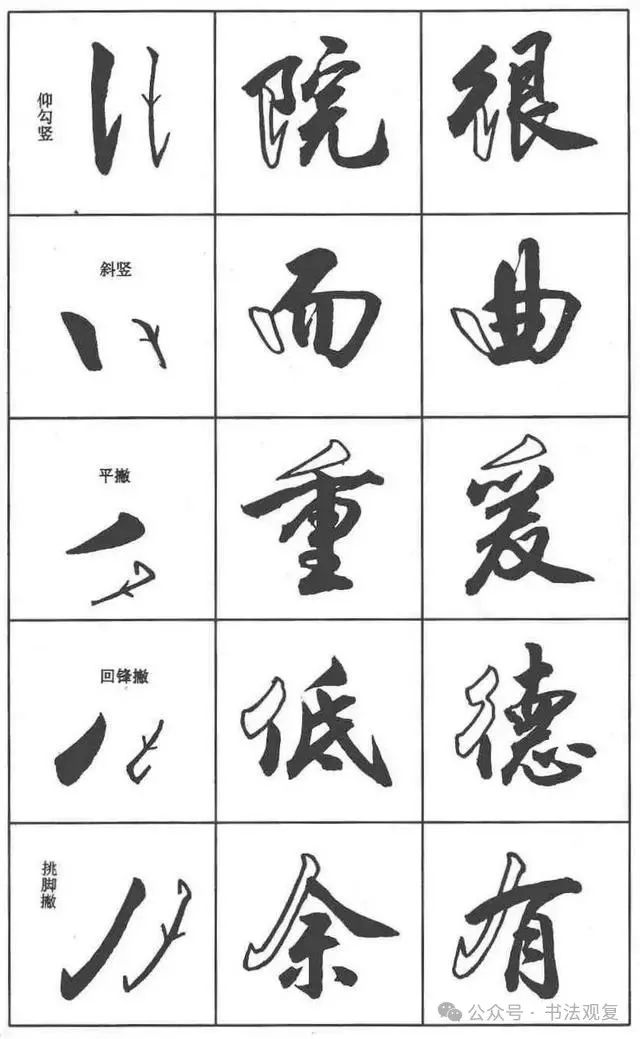 仰勾竖
院
很
斜竖
而
曲
平撇
重
爰
回锋撇
低
德
挑脚撇
余
有
公众号·书法观复